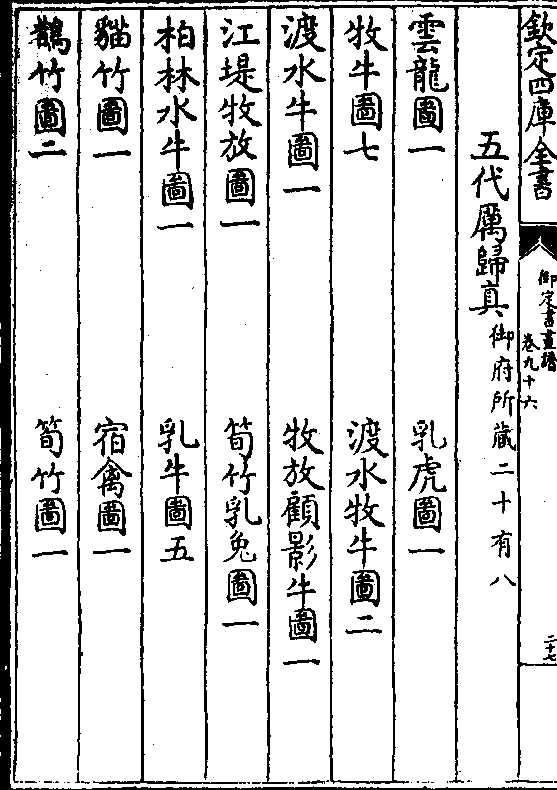 欽定四庫全書
御定書畫譜
卷九十六
二十七
五代厲歸真御府所藏二十有八
雲龍圖一　乳虎圖一
牧牛圖七　渡水牧牛圖二
渡水牛圖一　牧放顧影牛圖一
江堤牧放圖一　筍竹乳兔圖一
柏林水牛圖一　乳牛圖五
貓竹圖一　宿禽圖一
鵲竹圖二　筍竹圖一